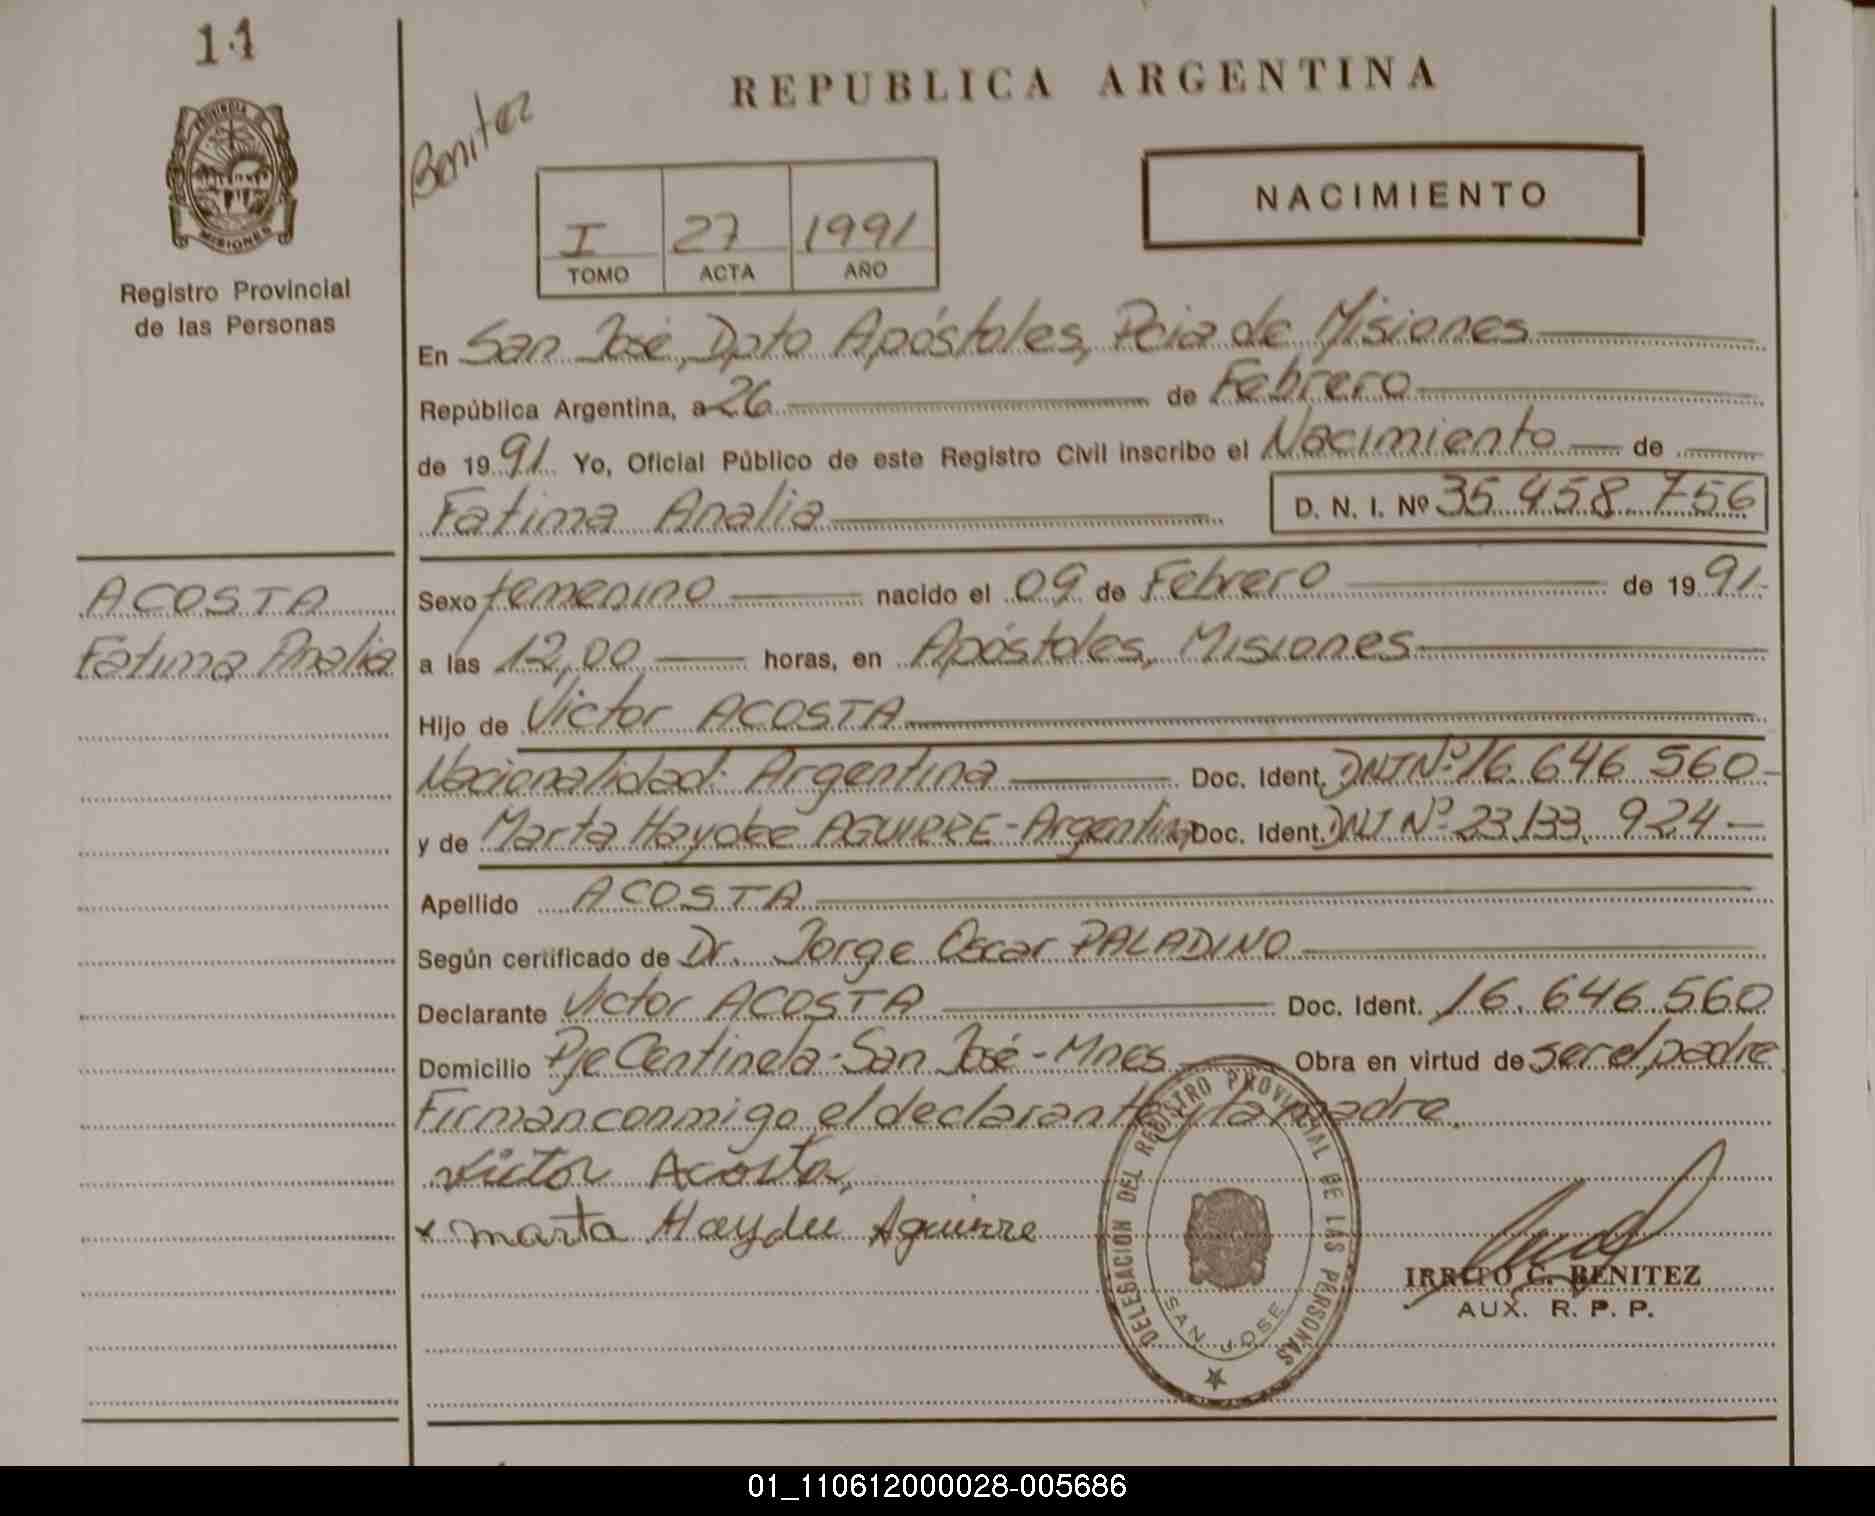 11
PROVINCIA DE
MISIONES
Registro Provincial
de las Personas
Benitez
REPUBLICA ARGENTINA
NACIMIENTO
I 27 1991
TOMO ACTA AÑO
En San José, Dpto Apóstoles, Pcia de Misiones
República Argentina, a 26 de Febrero
de 1991 Yo, Oficial Público de este Registro Civil inscribo el Nacimiento de
Fatima Analia D. N. I. Nº 35.458.756
ACOSTA
Fatima Analia
Sexo femenino nacido el 09 de Febrero de 1991
a las 12,00 horas, en Apóstoles, Misiones
Hijo de Victor ACOSTA
Nacionalidad: Argentina Doc. Ident. DNI Nº 16.646.560
y de Marta Haydee AGUIRRE - Argentina Doc. Ident. DNI Nº 23.133.924
Apellido ACOSTA
Según certificado de Dr. Jorge Oscar PALADINO
Declarante Victor ACOSTA Doc. Ident. 16.646.560
Domicilio Pje Centinela - San José - Mnes Obra en virtud de ser el padre
Firman conmigo el declarante y la madre.
Victor Acosta
x marta Haydee Aguirre
DELEGACION DEL REGISTRO PROVINCIAL DE LAS PERSONAS
SAN JOSE
IRRITO C. BENITEZ
AUX. R. P. P.
01_110612000028-005686